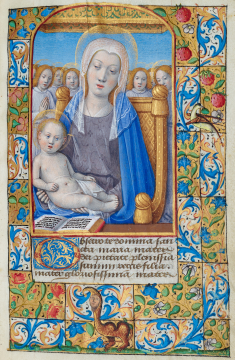 Obsecro te domina san
cta maria mater
dei pietate plenissia
summi regis filia
mater gloriosissima mater